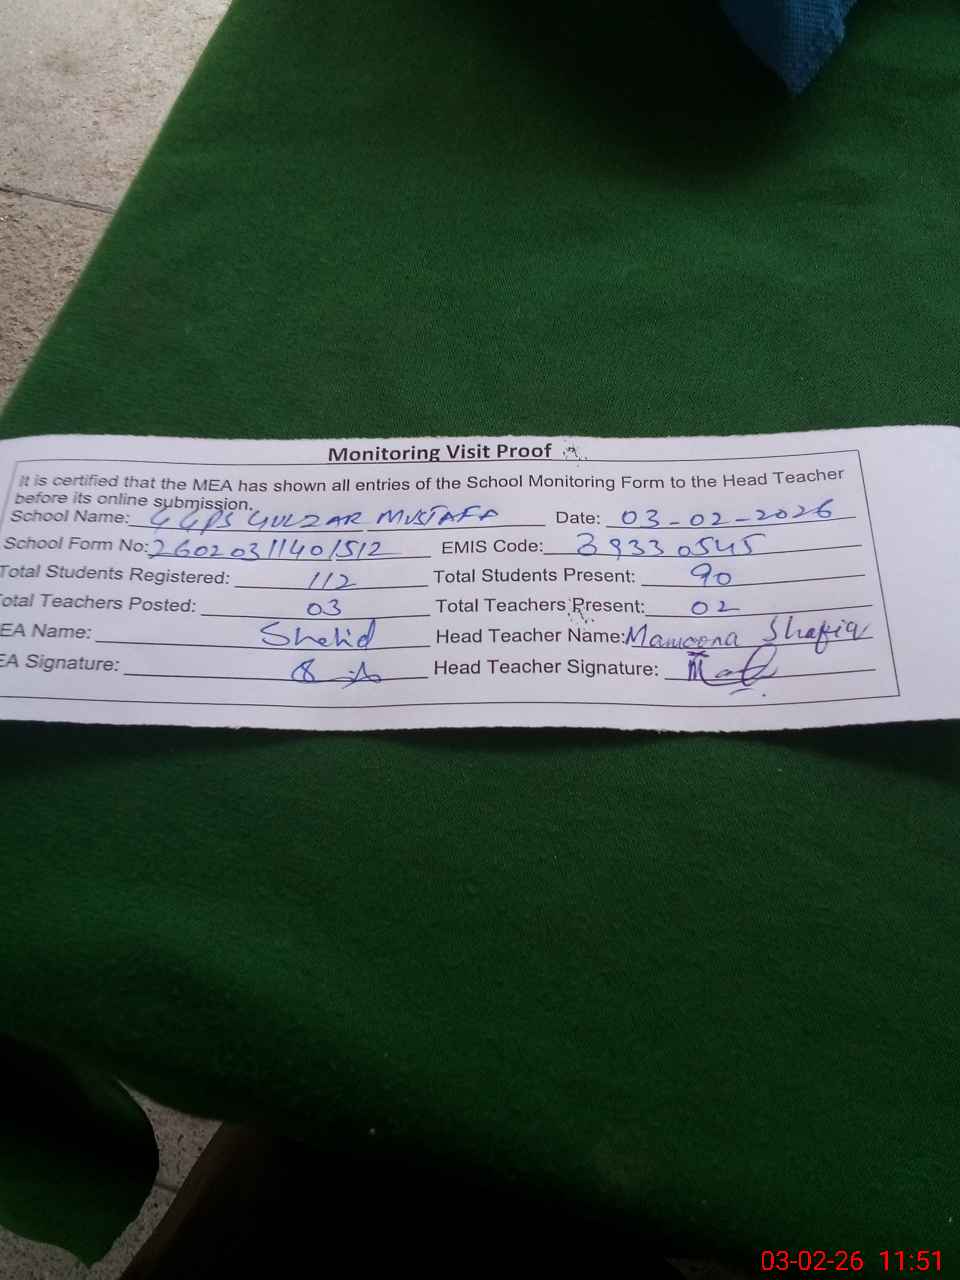 Monitoring Visit Proof
It is certified that the MEA has shown all entries of the School Monitoring Form to the Head Teacher
before its online submission.
School Name: GGPS GULZAR MUSTAFA Date: 03-02-2026
School Form No: 26020311401512 EMIS Code: 39330545
Total Students Registered: 112 Total Students Present: 90
otal Teachers Posted: 03 Total Teachers Present: 02
EA Name: Shahid Head Teacher Name: Mamoona Shafiq
EA Signature: Head Teacher Signature:
03-02-26 11:51